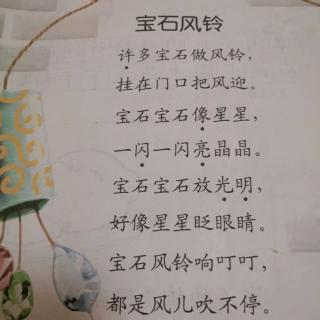 宝石风铃
许多宝石做风铃，
挂在门口把风迎。
宝石宝石像星星，
一闪一闪亮晶晶。
宝石宝石放光明，
好像星星眨眼睛。
宝石风铃响叮叮，
都是风儿吹不停。